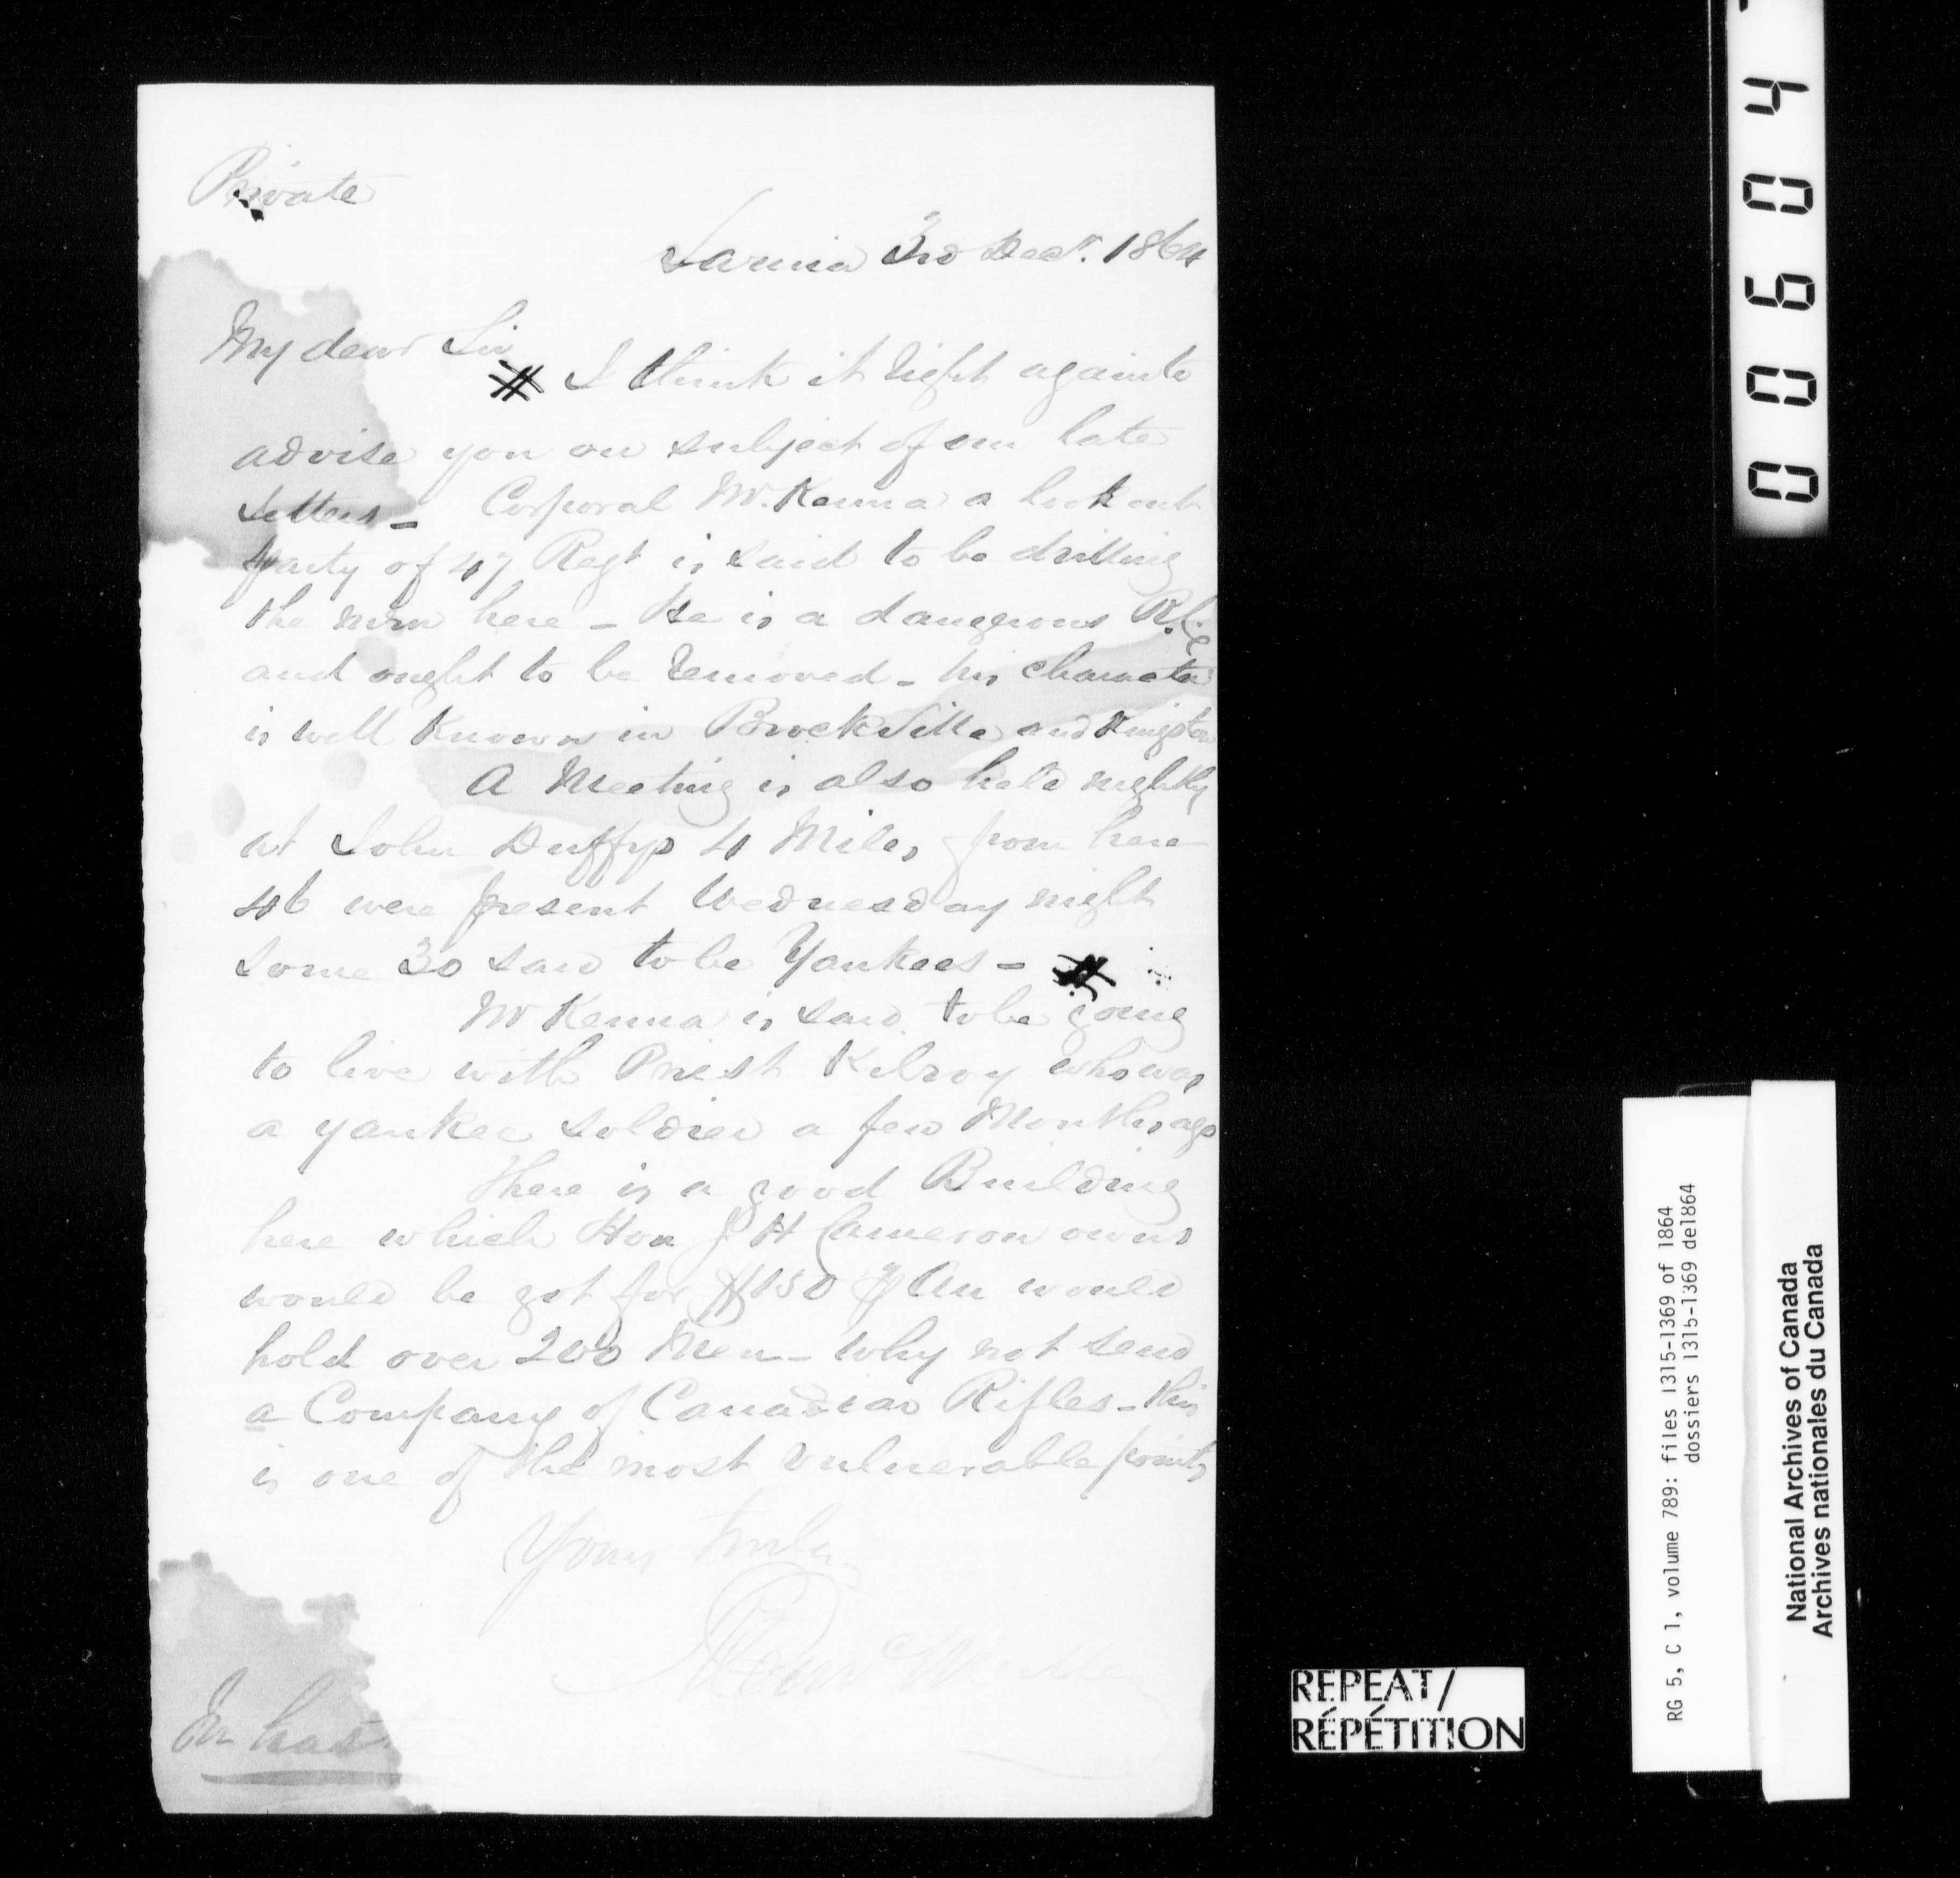 Private
Sarnia 3rd Decr. 1864
My dear Sir
# I think it right again to
advise you on subject of our late
letters - Corporal McKenna a look out
party of 47 Regt is said to be drilling
the men here - He is a dangerous R.C.
and ought to be removed - his character
is well known in Brockville and Kingston
A Meeting is also held nightly
at John Duffys 4 Miles from here
46 were present Wednesday night
some 30 said to be Yankees - #
McKenna is said to be going
to live with Priest Kilroy who was
a yankee soldier a few Months ago
There is a good Building
here which Hon J H Cameron owns
would be got for $150 ⅌ An would
hold over 200 Men - why not send
a Company of Canadian Rifles - this
is one of the most vulnerable points
Yours truly
In haste
00604
REPEAT/
RÉPÉTITION
RG 5, C 1, volume 789: files 1315-1369 of 1864
dossiers 1315-1369 de1864
National Archives of Canada
Archives nationales du Canada